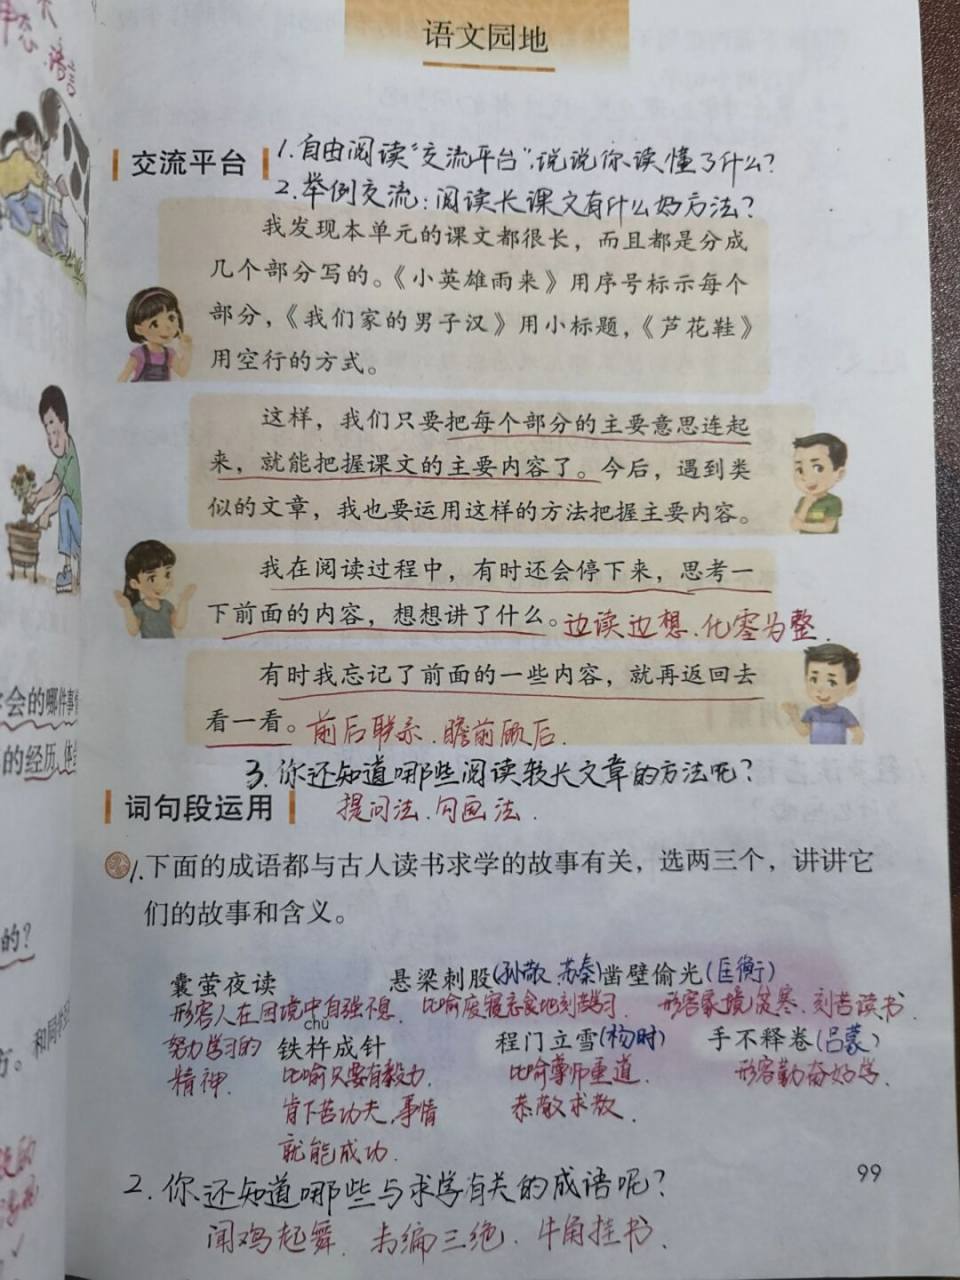 语文园地
交流平台
1.自由阅读“交流平台”,说说你读懂了什么?
2.举例交流:阅读长课文有什么好方法?
我发现本单元的课文都很长，而且都是分成
几个部分写的。《小英雄雨来》用序号标示每个
部分，《我们家的男子汉》用小标题，《芦花鞋》
用空行的方式。
这样，我们只要把每个部分的主要意思连起
来，就能把握课文的主要内容了。今后，遇到类
似的文章，我也要运用这样的方法把握主要内容。
我在阅读过程中，有时还会停下来，思考一
下前面的内容，想想讲了什么。边读边想、化零为整.
有时我忘记了前面的一些内容，就再返回去
看一看。前后联系、瞻前顾后.
3.你还知道哪些阅读较长文章的方法呢?
词句段运用
提问法、勾画法.
1.下面的成语都与古人读书求学的故事有关，选两三个，讲讲它
们的故事和含义。
囊萤夜读 悬梁刺股(孙敬、苏秦)凿壁偷光(匡衡)
形容人在困境中自强不息、 比喻废寝忘食地刻苦学习. 形容家境贫寒、刻苦读书.
chǔ
努力学习的 铁杵成针 程门立雪(杨时) 手不释卷(吕蒙)
精神. 比喻只要有毅力、 比喻尊师重道、 形容勤奋好学.
肯下苦功夫,事情 恭敬求教.
就能成功.
99
2.你还知道哪些与求学有关的成语呢?
闻鸡起舞、韦编三绝、牛角挂书.
会的哪件事情
的经历、体会
的?
和同学
方。
语言